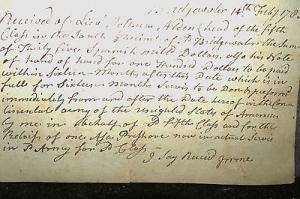 Bridgewater 14th Feby 178
Received of Lieut Joshua Alden (head of the fifth
Class in the South Precinct of Bridgewater the Sum
of Thirty five Spanish mill'd Dollars, also his Note
of hand of hand for one Hundred Dollars to be paid
within Sixteen Months after this Date which is in
full for Sixteen Months Servis to be Don &
immediately from and after the Date hereof in the Con
tinental Army of the United States of America
by me in behalf of fifth Class and for the
Relaiss of one now in actual Servis
in Army for Class
I Say Receivd